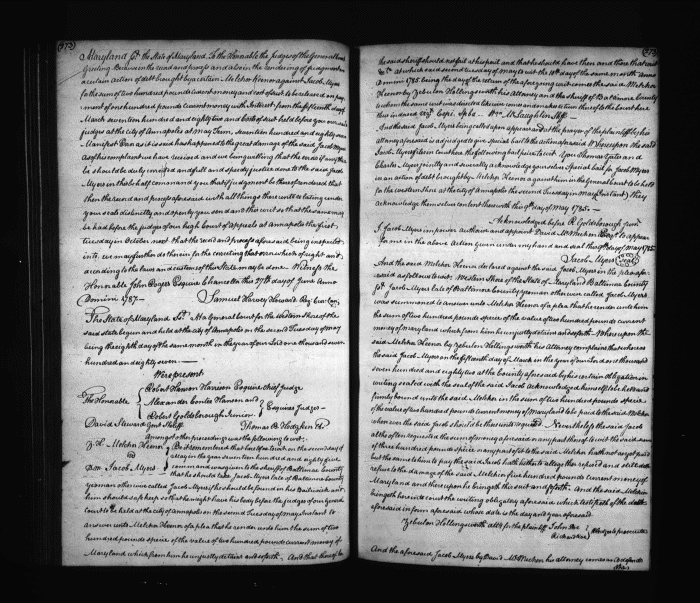 (372)
Maryland Sct. the State of Maryland To the Honorable the Judges of the General Court
Greeting Because in the record and process and also in the rendering of judgment in
a certain action of debt brought by a certain Melchor Keener against Jacob Myers
for the sum of two hundred pounds current money and cost of suit to be released on pay
ment of one hundred pounds current money with Interest from the fifteenth day of
March seventeen hundred and eighty two and costs of suit held before you our
judges at the City of Annapolis at may Term, seventeen hundred and eighty seven
Manifest Error as it is said has happened to the great damage of the said Jacob Myers
As of his complaint we have received and we being willing that the error if any there
be should be duly corrected and full and speedy justice done to the said Jacob
Myers in that behalf command you that if judgement be thereof rendered that
then the record and process aforesaid with all things thereunto relating under
your seal distinctly and openly you send and this writ so that the same may
be had before the judges of our high Court of appeals at Annapolis the first
tuesday in October next that the record and process aforesaid being inspected
into we may further do therein for the correcting that error which of right and
according to the laws and customs of this State may be done. Witness the
Honorable John Rogers Esquire Chancellor this 27th day of June Anno
Domini 1787. Samuel Harvey Howard Reg. Cur. Can.
The State of Maryland Sct. At a General Court for the Western Shore of the
said state begun and held at the city of Annapolis on the second Tuesday of May
being the eighth day of the same month in the year of our Lord one thousand seven
hundred and eighty seven
Were present
The Honorable
Robert Hanson Harrison Esquire Chief Judge
Alexander Contee Hanson and
Robert Goldsborough Junior
Esquires Judges
David Steuart Gent Sheriff Thomas B. Hodgkin Clk
Amongst other proceedings was the following to wit.
Melchor Keener
vs
Jacob Myers
Be it remembered that heretofore to wit on the second day of
May in the year seventeen hundred and eighty five
was given to the sheriff of Baltimore County
that he should take Jacob Myers late of Baltimore County
yeoman otherwise called Jacob Myers if he should be found in his Bailiwick and
him should safe keep so that he might have his body before the judges of our general
Court to be held at the city of Annapolis on the second Tuesday of May instant to
answer unto Melchor Keener of a plea that he render unto him the sum of two
hundred pounds specie of the value of two hundred pounds current money of
Maryland which from him he unjustly detains and so forth. And that then he
(373)
the said sheriff should not fail at his peril and that he should have then and there that writ
At which said second tuesday of may to wit the 10th day of the same month Anno
Domini 1785 being the day of the return of the aforegoing writ comes the said Melchor
Keener by Zebulon Hollingsworth his Attorney and the sheriff of Baltimore County
to whom the same writ was directed likewise comes and makes return thereof to the Court here
thus indorsed viz. Cepi. McLaughlin Shff.
And the said Jacob Myers being called upon appeared and at the prayer of the plaintiff by his
attorney aforesaid is adjudged to give Special bail to the action aforesaid Whereupon the said
Jacob Myers of term Court has the following bail piece to wit. You Thomas Yates and
Charles Myers jointly and severally acknowledge yourselves Special bail for Jacob Myers
in an action of debt brought by Melchor Keener against him in the General Court to be held
for the western shore at the city of Annapolis the second Tuesday in may Instant. They
acknowledge themselves content therewith this 9th day of May 1785.
Acknowledged before R Goldsborough Jun.
I Jacob Myers in power authorise and appoint David McMechen Esqr. to appear
for me in the above Action given under my hand and seal this 9th day of May 1785
Jacob Myers (Seal)
And the said Melchor Keener declared against the said Jacob Myers in the plea afore
said as follows to wit. Western Shore of the State of Maryland Baltimore County
Sct. Jacob Myers late of Baltimore County yeoman otherwise called Jacob Myers
was summoned to answer unto Melchor Keener of a plea that he render unto him
the sum of two hundred pounds specie of the value of two hundred pounds current
money of maryland which from him he unjustly detains and so forth. Whereupon the
said Melchor Keener by Zebulon Hollingsworth his Attorney complains that whereas
the said Jacob Myers on the fifteenth day of March in the year of our Lord one thousand
seven hundred and eighty two at the County aforesaid by his certain obligation in
writing sealed with the seal of the said Jacob Acknowledged himself to be held and
firmly bound unto the said Melchor in the sum of two hundred pounds specie
of the value of two hundred pounds current money of Maryland to be paid to the said Melchor
when ever the said Jacob should be thereunto required. Nevertheless the said Jacob
at the often requested the sum of money aforesaid or any part thereof to wit the said sum
of three hundred pounds specie or any part of to the said Melchor hath not as yet paid
but the same to him to pay the said Jacob hath hitherto altogether refused and still doth
refuse to the damage of the said Melchor five hundred pounds current money of
Maryland and thereupon he bringeth this suit and so forth. And the said Melchor
bringeth here into court the writing obligatory aforesaid which testifies of the debt
aforesaid in form aforesaid whose date is the day and year aforesaid
Zebulon Hollingsworth atty for the plaintiff John Doe
Richard Roe
Pledges to prosecute
And the aforesaid Jacob Myers by David McMechen his attorney comes and defends